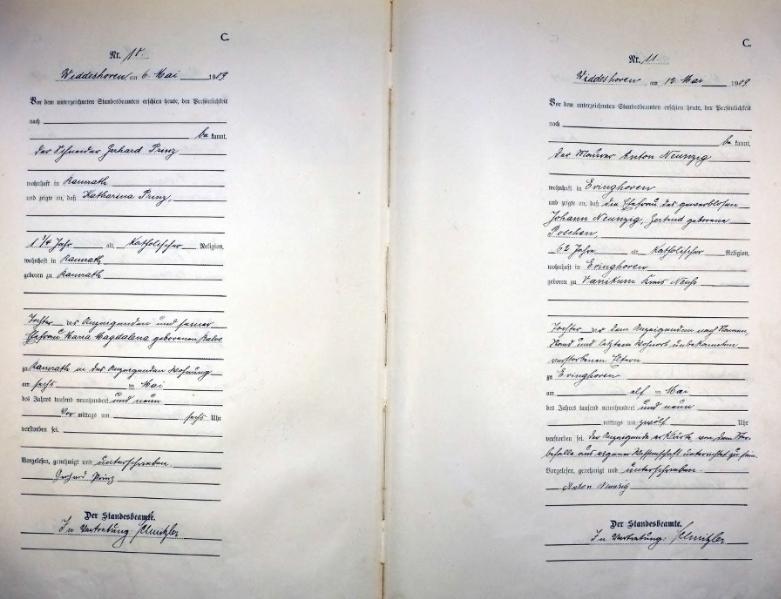 C.
Nr. 10.
Widdeshoven am 6. Mai 1909
Vor dem unterzeichneten Standesbeamten erschien heute, der Persönlichkeit
nach
be kannt,
der Schneider Gerhard Prinz
wohnhaft in Ramrath
und zeigte an, daß Katharina Prinz,
1 3/4 Jahr alt, Katholischer Religion,
wohnhaft in Ramrath
geboren zu Ramrath
Tochter des Anzeigenden und seiner
Ehefrau Maria Magdalena geborenen
zu Ramrath in des Anzeigenden Wohnung
am sechs ten Mai
des Jahres tausend neunhundert und neun
Vor mittags um sechs Uhr
verstorben sei.
Vorgelesen, genehmigt und unterschrieben
Gerhard Prinz
Der Standesbeamte.
In Vertretung
C.
Nr. 11
Widdeshoven am 12. Mai 1909
Vor dem unterzeichneten Standesbeamten erschien heute, der Persönlichkeit
nach
be kannt,
der Maurer Anton Neunzig
wohnhaft in Evinghoven
und zeigte an, daß die Ehefrau des gewerblosen
Johann Neunzig, Gertrud geborene
62 Jahre alt, Katholischer Religion,
wohnhaft in Evinghoven
geboren zu Vanikum Kreis Neuß
Tochter der dem Anzeigenden nach Namen,
Stand und letztem Wohnort unbekannten
verstorbenen Eltern
zu Evinghoven
am elf ten Mai
des Jahres tausend neunhundert und neun
mittags um zwölf Uhr
verstorben sei. Der Anzeigende erklärte von dem Ster-
befalle aus eigener Wissenschaft unterrichtet zu sein.
Vorgelesen, genehmigt und unterschrieben
Anton Neunzig
Der Standesbeamte.
In Vertretung: